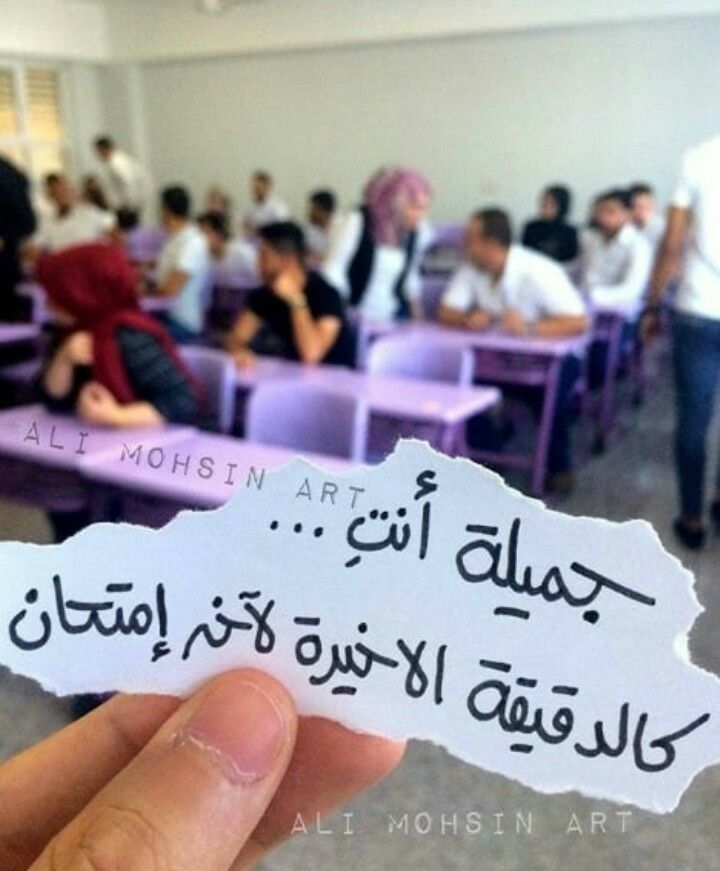 ALI MOHSIN ART
جميلة أنتِ ...
كالدقيقة الاخيرة لآخر إمتحان
ALI MOHSIN ART